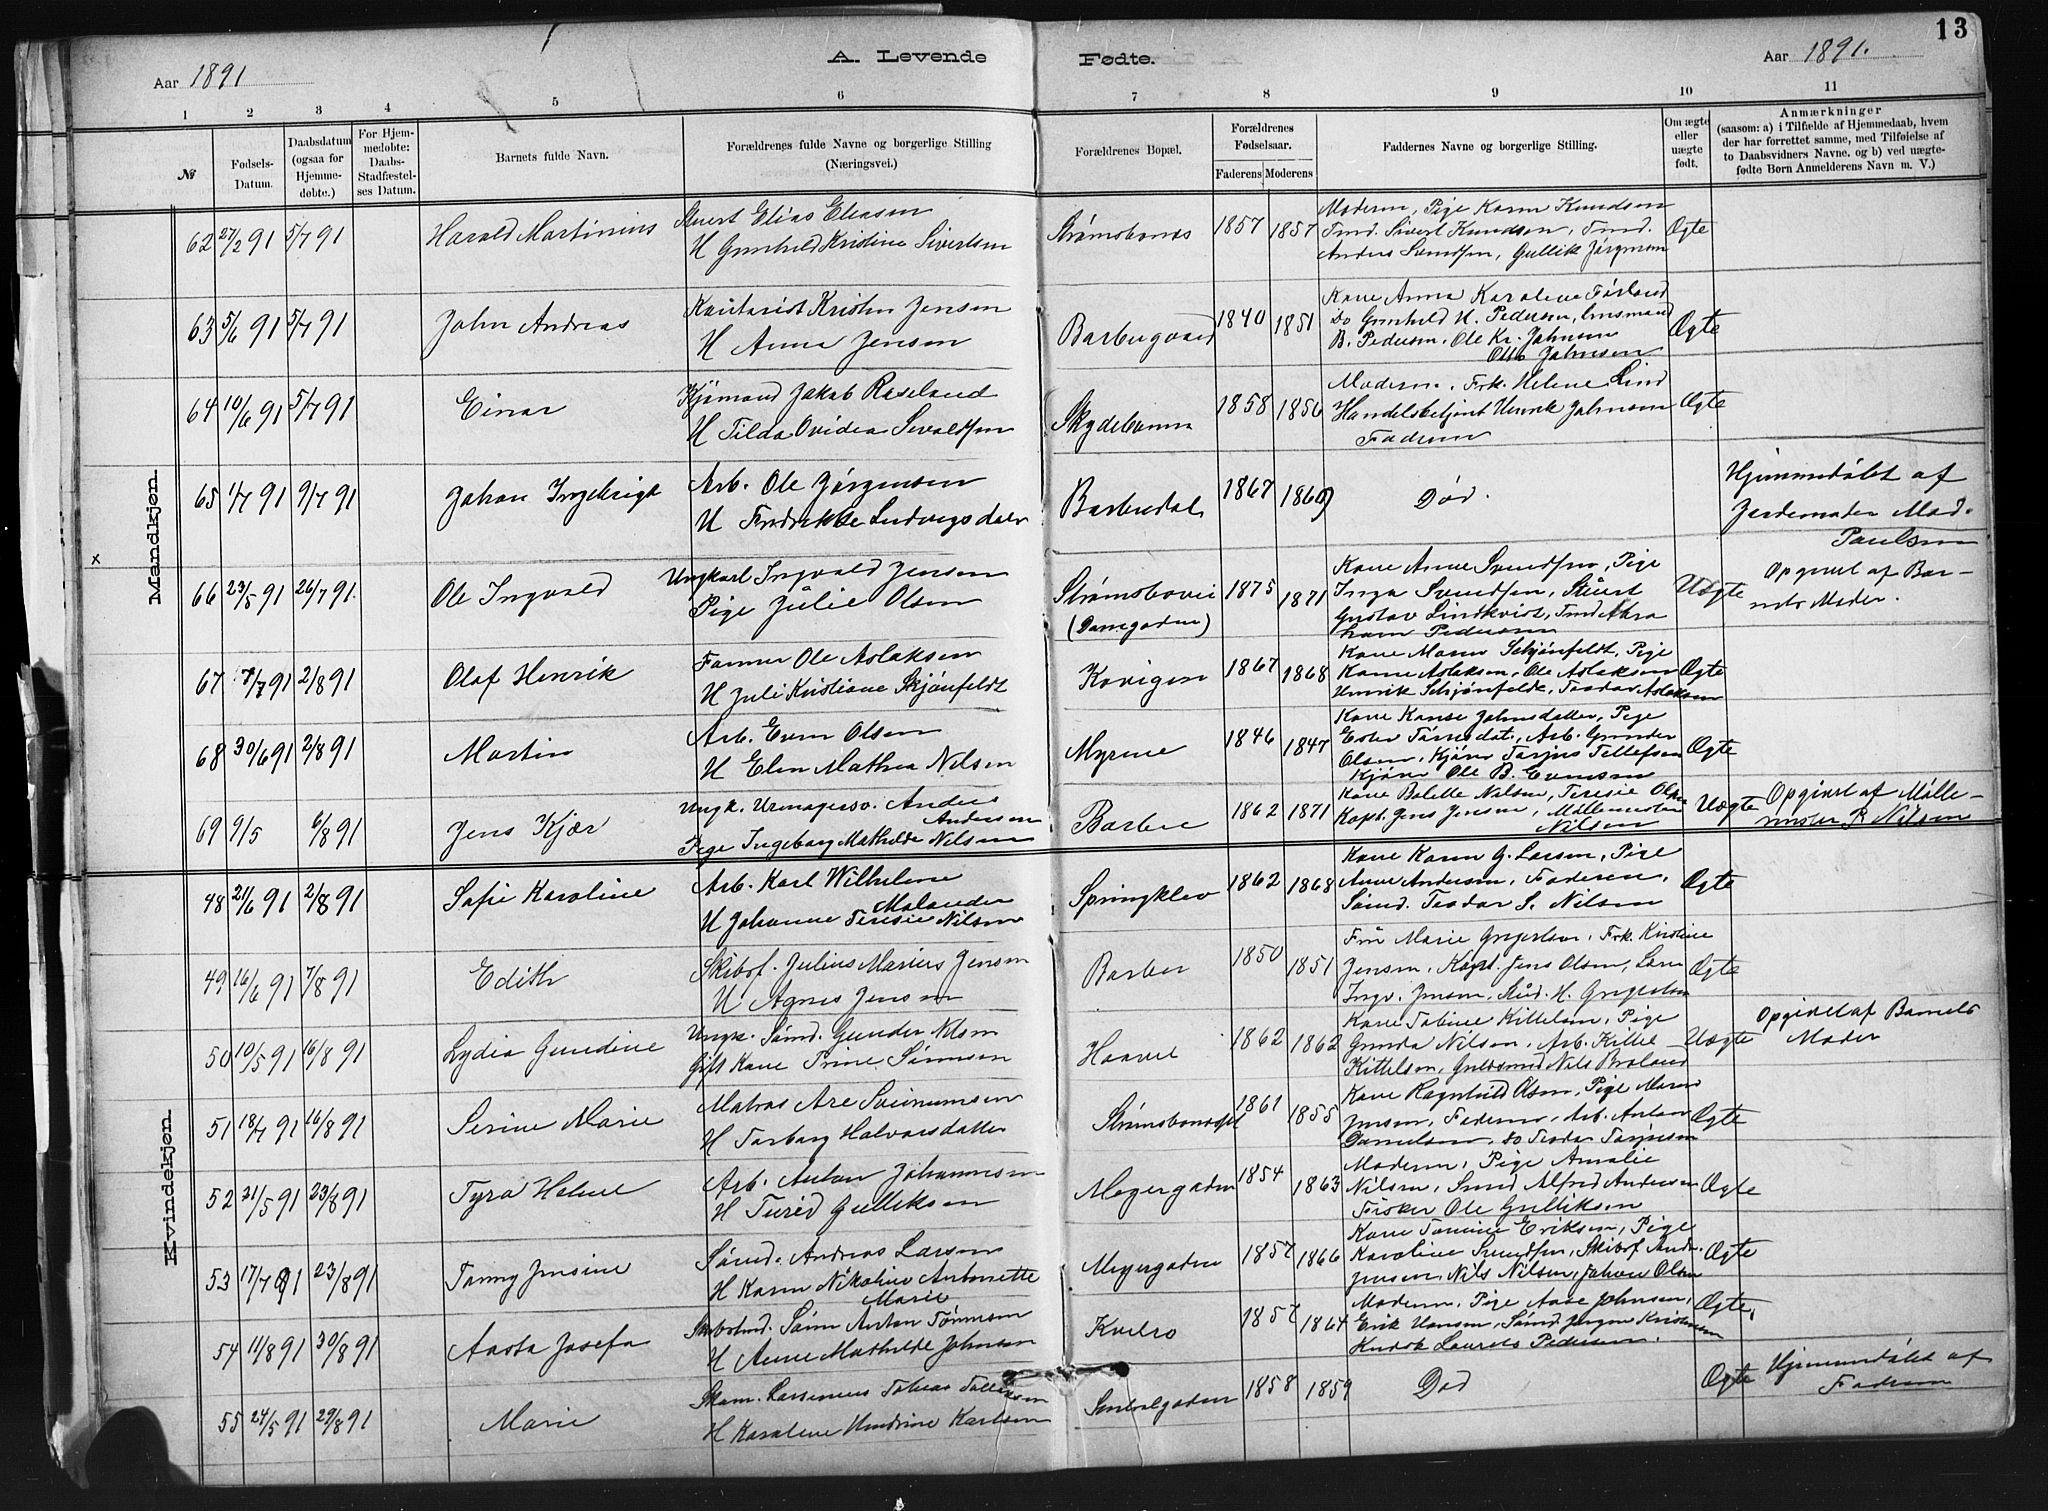 13
A. Levende Fødte.
Aar 1891
Aar 1891.
1 2 3 4 5 6 7 8 9 10 11
№
Fødsels-Datum.
Daabsdatum (ogsaa for Hjemme-døbte.)
For Hjem-medøbte: Daabs-Stadfæstel-ses Datum.
Barnets fulde Navn.
Forældrenes fulde Navne og borgerlige Stilling (Næringsvei.)
Forældrenes Bopæl.
Forældrenes Fødselsaar.
Faderens Moderens
Faddernes Navne og borgerlige Stilling.
Om ægte eller uægte født.
Anmærkninger
(saasom: a) i Tilfælde af Hjemmedaab, hvem
der har forrettet samme, med Tilføielse af
to Daabsvidners Navne, og b) ved uægte-
fødte Børn Anmelderens Navn m. V.)
Mandkjøn.
62 27/2 91 5/7 91 Harald Martinius
Stuert Elias Eliasen
H Gunhild Kristine Sivertsen
1857 1857
Moderen, Pige Karen Knudsen
Tmd. Sivert Knudsen, Tmd.
Anders Svendsen, Gullik Jørgensen
Ægte
63 5/6 91 5/7 91 John Andreas
Kristen Jensen
H Anna Jensen
Barbugaard 1840 1851
Kone Anna Karoline
Do Gunhild H. Pedersen,
B. Pedersen, Ole Kr. Johnsen
Johnsen
Ægte
64 10/6 91 5/7 91 Einar
Kjømand Jakob Roseland
H Tilda Ovidea Sivaldsen
1858 1856
Moderen, Frk. Helene Lind
Handelsbetjent Henrik Johnsen
Faderen
Ægte
65 1/7 91 9/7 91 Johan Ingebrigt
Arb. Ole Jørgensen
H Fredrikke Ludvigsdatr
Barbudal 1867 1869
Død.
Hjemmedøbt af
Jordemoder Mad.
Paulsen
x
66 23/5 91 26/7 91. Ole Ingvald
Ungkarl Ingvald Jensen
Pige Julie Olsen
Strømsbovei
1875 1871
Kone Anne Svendsen, Pige
Inga Svendsen, Stuert
Gustav Lindkvist, Tmd Abra
ham Pedersen
Uægte
Opgivet af Bar-
nets Moder.
67 7/7 91 2/8 91 Olaf Henrik
Farmer Ole Aslaksen
H Juli Kristiane Skjønfeldt
Kovigen 1867 1868
Kone Maren Schjønfeldt, Pige
Karine Aslaksen, Ole Aslaksen
Henrik Schjønfeldt, Teodor Aslaksen
Ægte
68 30/6 91 2/8 91 Martin
Arb. Even Olsen
H Elen Mathea Nilsen
Myrene 1846 1847
Kone Johnsdatter, Pige
Ester Tørresdat., Arb. Gunder
Olsen, Kjører Tarjus Tellefsen
Kjører Ole B. Evensen
Ægte
69 9/5 6/8 91 Jens Kjær
Ungk. Urmagersv. Anders
Andersen
Pige Ingeborg Mathilde Nilsen
Barbu 1862 1871
Kone Bolette Nilsen, Teresie Olsen
Kapt. Jens Jensen, Møllemester
Nilsen
Uægte
Opgivet af Mølle-
mester P. Nilsen
Kvindekjøn.
48 21/6 91 2/8 91 Sofie Karoline
Arb. Karl Wilhelm
Malander
H Johanne Teresie Nilsen
Springklev 1862 1868
Kone Karen G. Larsen, Pige
Anne Andersen, Faderen,
Sømd. Teodor S. Nilsen
Ægte
49 16/6 91 7/8 91 Edith
Skibsf. Julius Marius Jensen
H Agnes Jensen
Barbu 1850 1851
Fru Marie Gregersen, Frk. Kristine
Jensen, Kapt. Jens Olsen,
Ingv. Jensen, Stud. H. Gregersen
Ægte
50 10/5 91 16/8 91 Lydia Gundine
Ungk. Sømd. Gunder Nilsen
Gift Kone Trine Sørensen
Haave 1862 1862
Kone Tobine Kittelsen, Pige
Gunda Nilsen, Arb. Kittel
Kittelsen, Guldsmed Nils Broland
Uægte
Opgivet af Barnets
Moder
51 18/7 91 16/8 91 Serine Marie
Matros Are Sveinumsen
H Torborg Halvorsdatter
1861 1855
Kone Ragnhild Olsen, Pige Maren
Jensen, Faderen, Arb. Anton
Danielsen, do Teodor Tarjusen
Ægte
52 21/5 91 23/8 91 Tyra Helene
Arb. Anton Johannesen
H Turid Gulliksen
Meyergaden 1854 1863
Moderen, Pige Amalie
Nilsen, Smed Alfred Andersen
Fisker Ole Gulliksen
Ægte
53 17/7 91 23/8 91 Tanny Jensine
Sømd. Andreas Larsen
H Karen Nikoline Antonette
Marie
Meyergaden 1857 1866
Kone Tomine Eriksen, Pige
Karoline Svendsen, Skibsf Andr.
Jensen, Nils Nilsen, Johan Olsen
Ægte
54 11/8 91 30/8 91 Aasta Josefa
Søren Anton Tønnesen
H Anne Mathilde Johnsen
1857 1864
Moderen, Pige Aase Johnsen,
Erik Hansen, Sømd Jørgen Kristensen
Laurits Pedersen.
Ægte,
55 24/5 91 29/8 91 Marie
Tobias
H Karoline Hendrine Karlsen
1858 1859
Død
Ægte
Hjemmedøbt af
Faderen